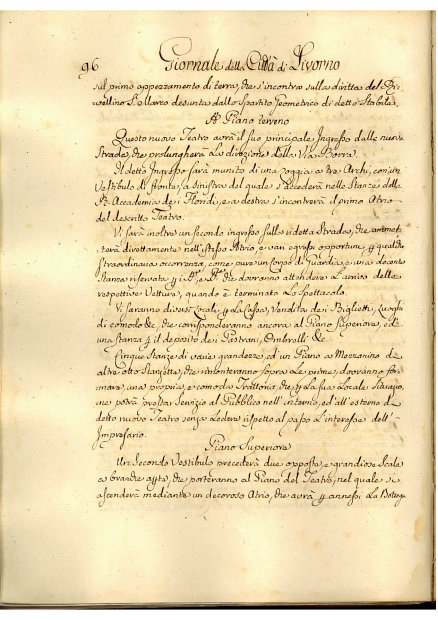 96 Giornale della Città di Livorno
sul primo appezzamento di terra, che s'incontra sulla diritta del Ri-
vellino S. Marco desunta dallo spartito Geometrico di detto Stabile,
A Piano terreno
Questo nuovo Teatro avrà il suo principale Ingresso dalle nuove
Strade, che prolungherà la direzione della Via Borra.
Il detto Ingresso sarà munito di una Loggia a tre Archi, con un
Vestibulo di fronte, a sinistra del quale s'accederà nelle Stanze della
R. Accademia dei Floridi, e a destra s'incontrerà il primo Atrio
del descritto Teatro.
Vi sarà inoltre un secondo ingresso sulla detta Strada, che immet-
terà direttamente nell'istesso Atrio, e vari egressi opportuni p qualche
straordinaria occorrenza, come pure un Corpo di Guardia, e una decente
Stanza riservata p che dovranno attendere l'arrivo delle
respettive Vetture, quando è terminato lo Spettacolo.
Vi saranno diversi Locali p la Cassa, Vendita dei Biglietti, Luoghi
di comodo &c, che corrisponderanno ancora al Piano Superiore, ed
una stanza p il deposito dei Pastrani, Ombrelli &c.
Cinque Stanze di varie grandezze, ed un Piano a Mezzanino di
altre otto Stanzette, che rimonteranno sopra le prime, dovranno for-
mare, una propria, e comoda Trattoria, che p la sua Locale situazio-
ne potrà prestar Servizio al Pubblico nell'interno, ed all'esterno di
detto nuovo Teatro senza Ledere rispetto al passo L'interesse dell'
Impresario.
Piano Superiore
Un Secondo Vestibulo precederà due opposte, e grandiose Scale
a branche, che porteranno al Piano del Teatro, nel quale si
ascenderà mediante un decoroso Atrio, che avrà p annessi La Bottega